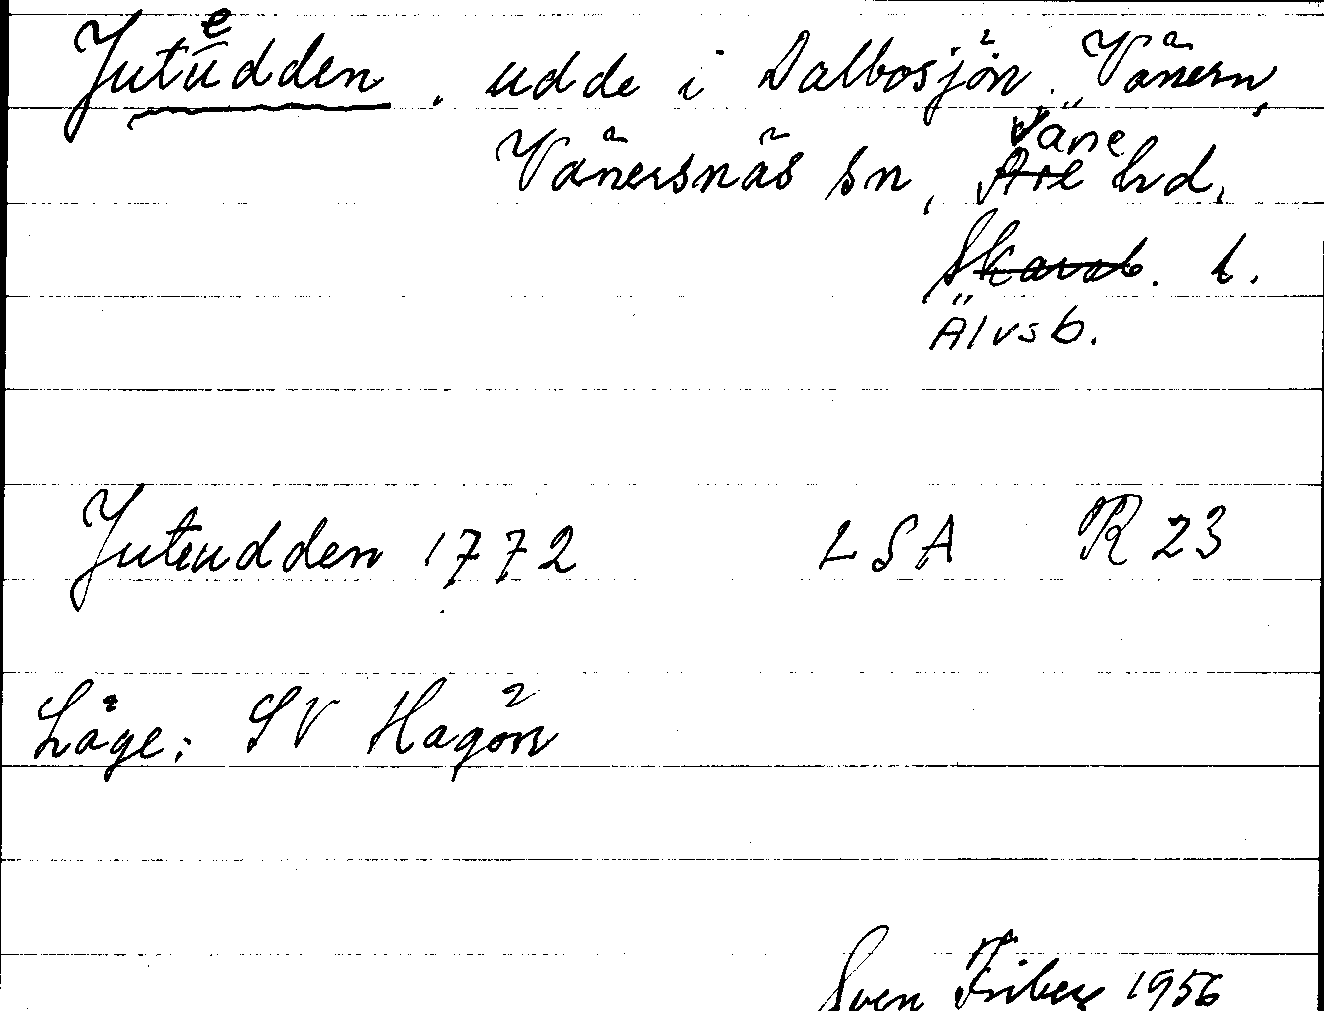 Juteudden, udde i Dalbosjön, Vänern,
Väne
Vänersnäs sn, Åse hd,
Skarab. l.
Älvsb.
Juteudden 1772 LSA R 23
Läge: SV Hagön
Sven Friberg 1956